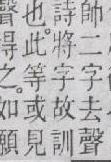 帥二字去聲
詩將字故訓
也此等或見
聲得之如願